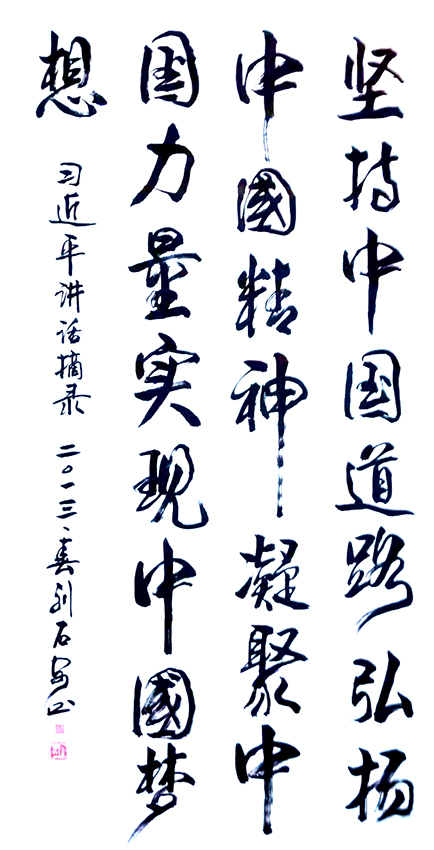 坚持中国道路弘扬
中國精神凝聚中
国力量实现中國梦
想
习近平讲话摘录 二〇一三、春刘石